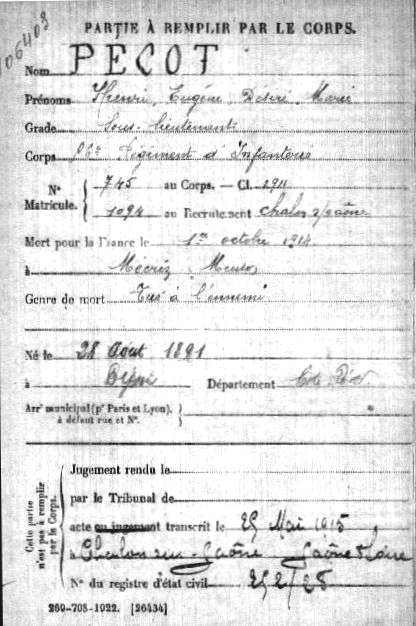 06403
PARTIE À REMPLIR PAR LE CORPS.
Nom PECOT
Prénoms Henri, Eugène, Désiré, Marie
Grade Sous-lieutenant
Corps Régiment d'Infanterie
N° Matricule. 745 au Corps. — Cl. 1911
1094 au Recrutement Chalon s/Saône
Mort pour la France le 1er octobre 1914
à Meuse
Genre de mort Tué à l'ennemi
Né le 28 Août 1891
à Dijon Département Côte d'Or
Arrt municipal (pr Paris et Lyon), à défaut rue et N°.
Cette partie n'est pas à remplir par le Corps.
Jugement rendu le
par le Tribunal de
acte ou jugement transcrit le 25 Mai 1915
à Chalon sur Saône Saône & Loire
N° du registre d'état civil 252/28
269-708-1922. [26434]